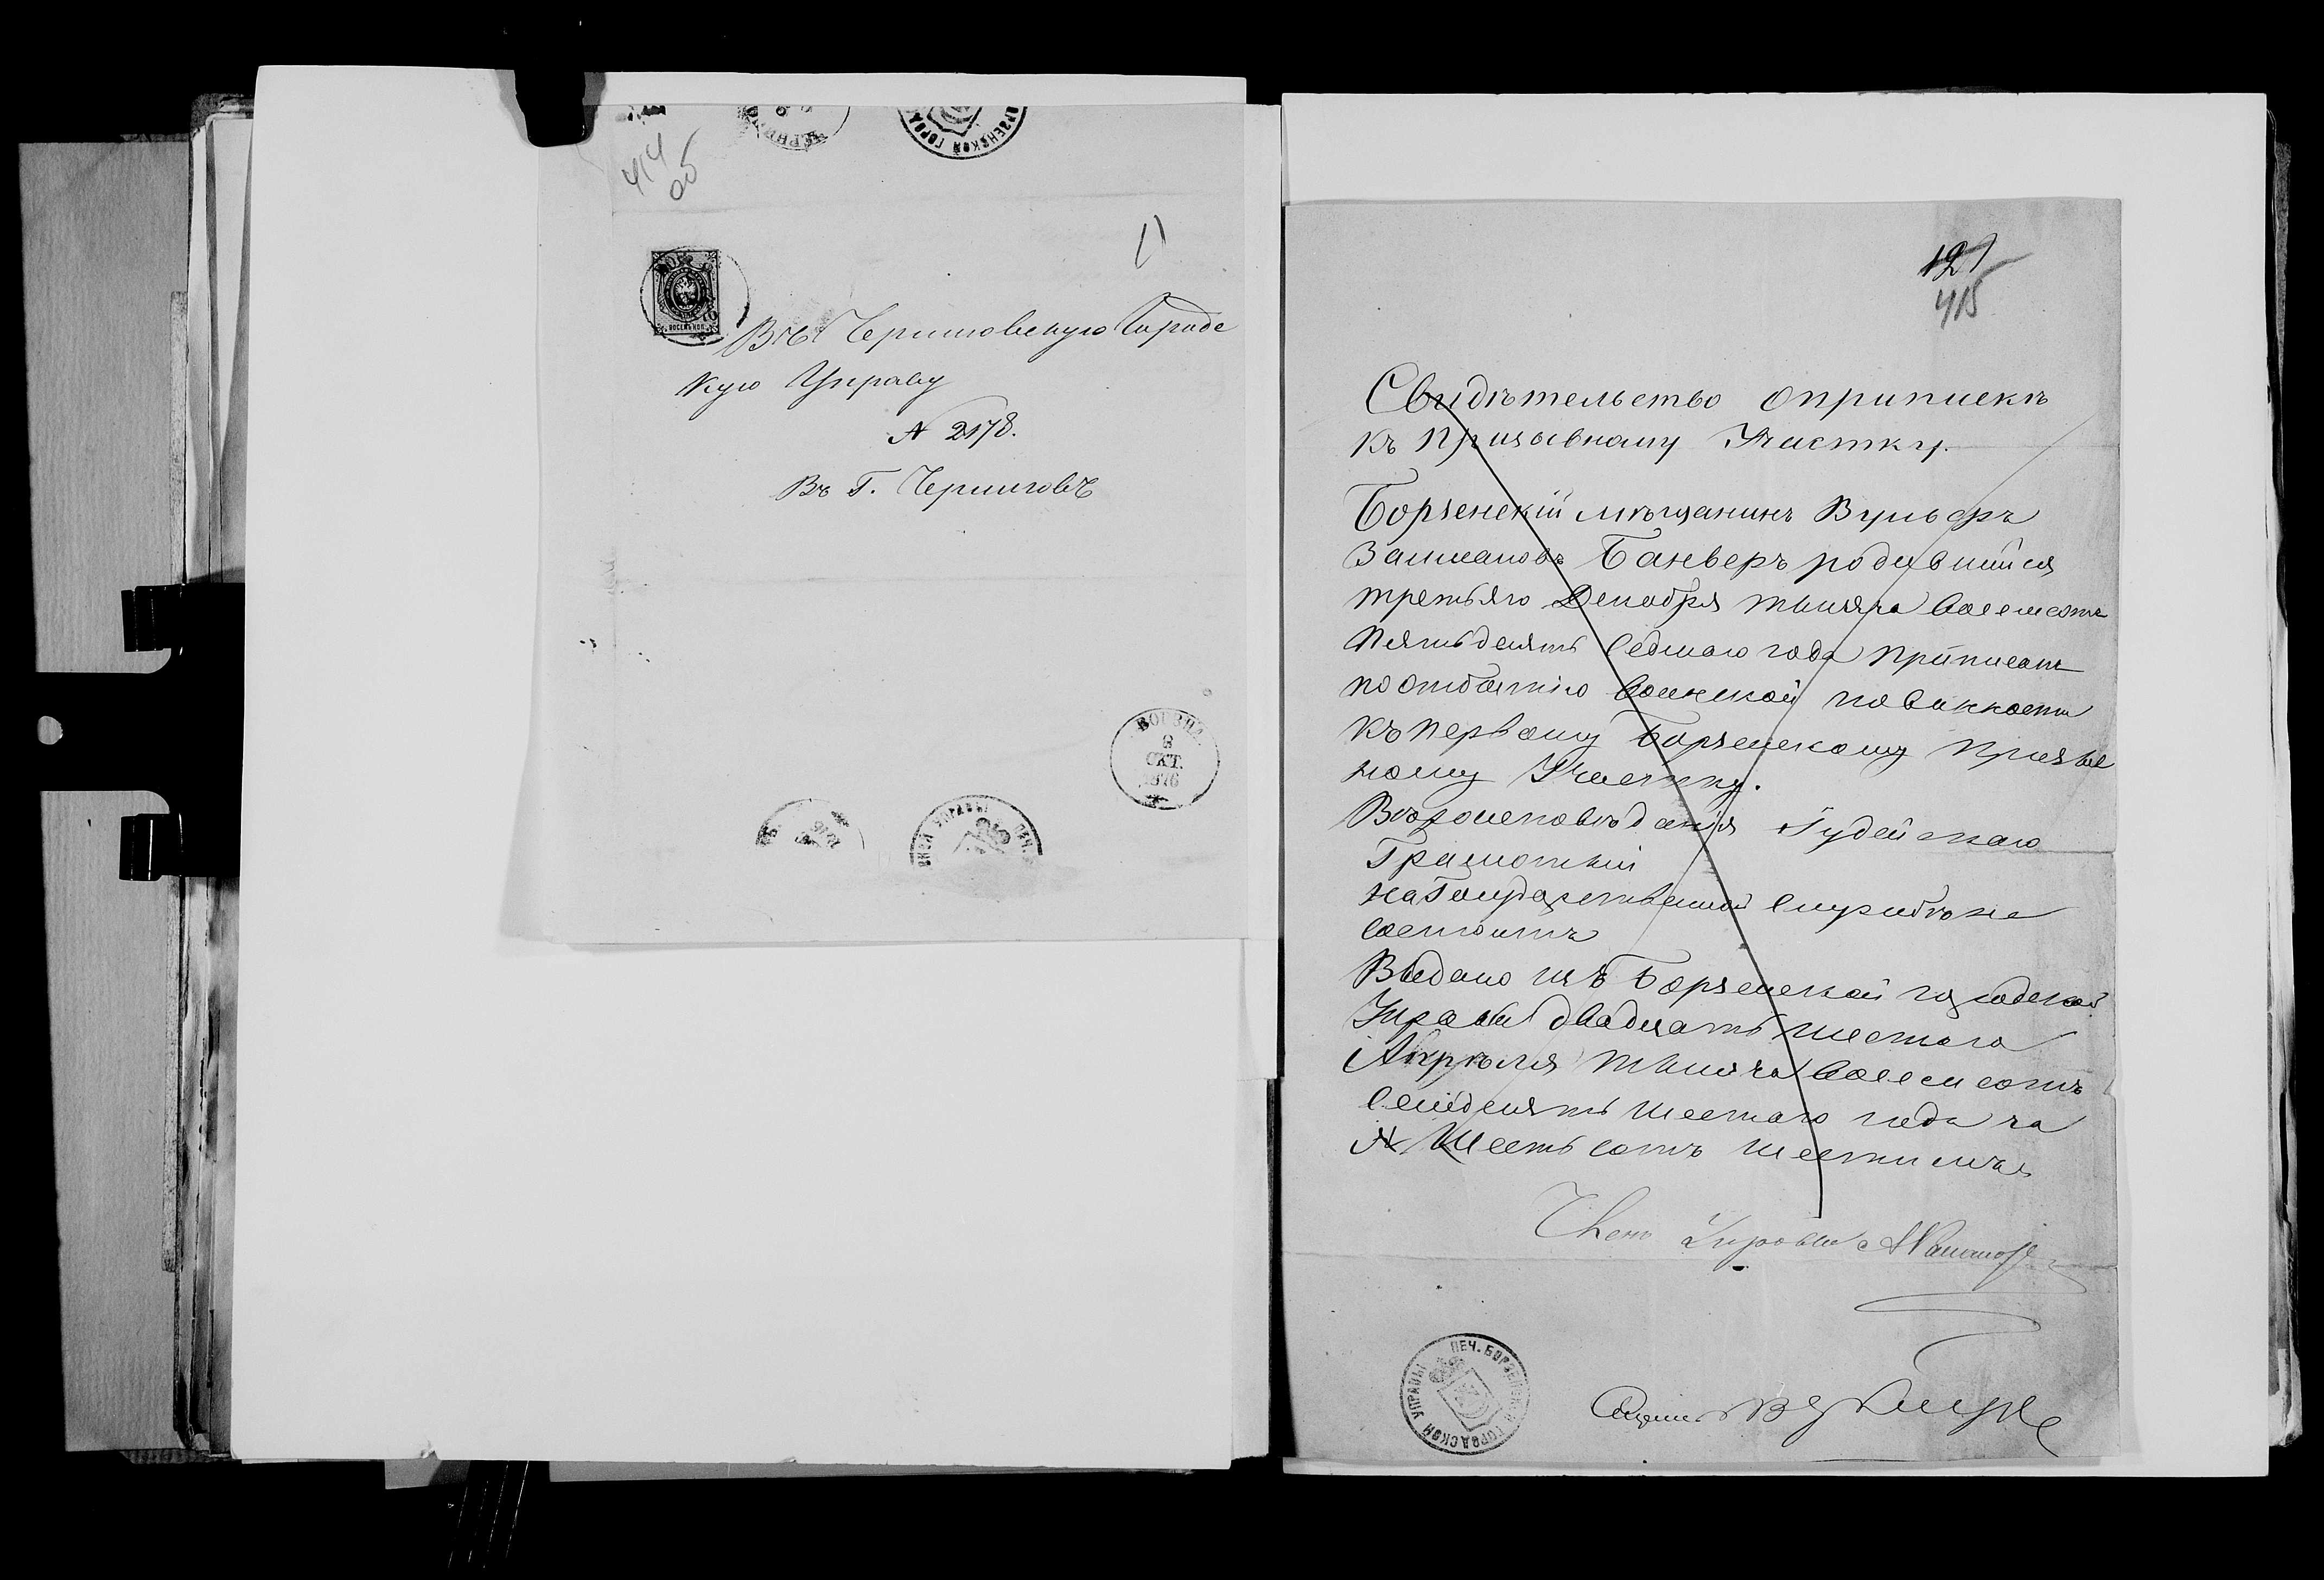 414
об
Въ Черниговскую Городс
кую Управу
№ 2178.
Въ Г. Черниговѣ
БОРЗНА
8
ОКТ.
1876
121
415
Свидѣтельство о припискѣ
къ призывному Участку.
Борзенскій мѣщанинъ Вульфъ
Залмановъ Банверъ родившийся
третьяго Декабря тысяча восемсотъ
пятьдесятъ седмаго года приписанъ
по отбытію воинской повинности
къ первому Борзенскому призыв
ному Участку.
Вѣроисповѣданія Іудейскаго
Грамотный
На Государственной службѣ не
состоитъ
Выдано изъ Борзенской городской
Управы двадцать шестаго
Апрѣля тысяча восемсотъ
семдесятъ шестаго года за
№ Шестьсотъ шестымъ
Членъ Управы
ПЕЧ. БОРЗЕНСКОЙ ГОРОДСКОЙ УПРАВЫ